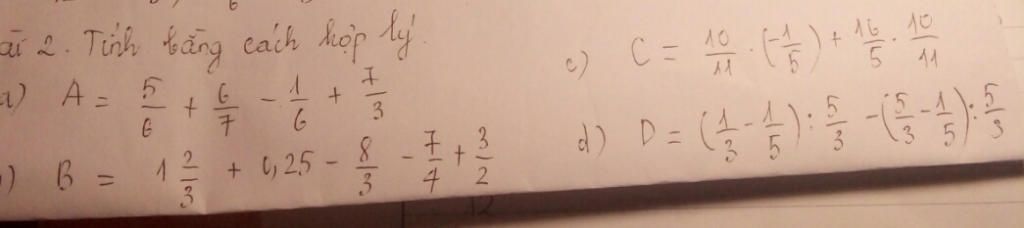 ài 2. Tính bằng cách hợp lý.
a) A = 5/6 + 6/7 - 1/6 + 7/3
) B = 1 2/3 + 0,25 - 8/3 - 7/4 + 3/2
c) C = 10/11 . (-1/5) + 16/5 . 10/11
d) D = (1/3 - 1/5) : 5/3 - (5/3 - 1/5) : 5/3
12